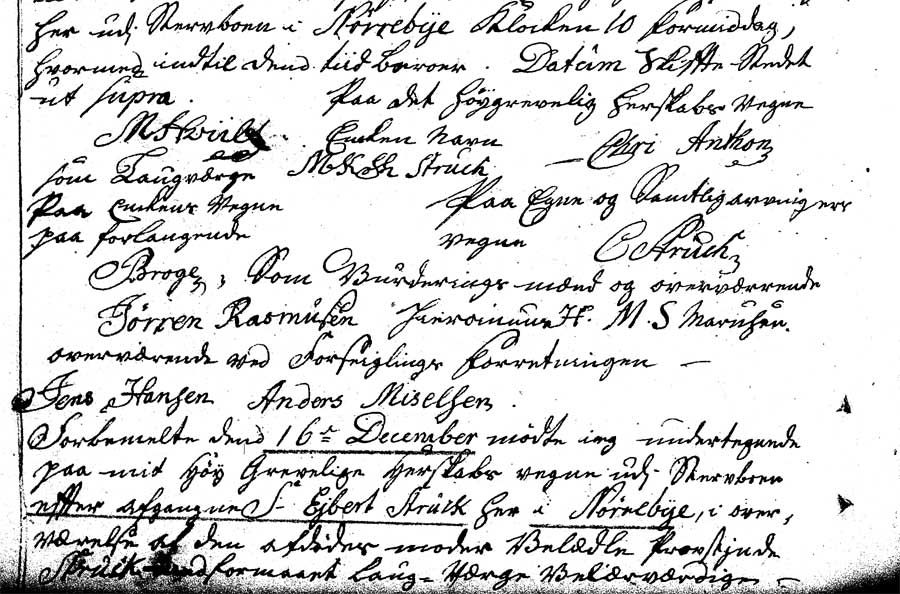 her udj Stervboen i Nörrebÿe Klocken 10 formiddag,
hvormed indtil dend tiid beroer. Datum Skifte Stedet
ut supra. Paa det höygrevelig Herskabs Vegne
Enken Navn Chri Anthon
som Laugværge Struch
Paa Enkens Vegne Paa Egne og Samtlig arvingers
paa forlangende vegne C Struch
Broge, Som Vurderings mænd og overværrende
Jörren Rasmusen M. S
overværende ved Forseiglings Forretningen —
Jens Hansen Anders Miselsen.
Forbemelte dend 16de December mödte ieg undertegnede
paa mit Höy Grevelige Herskabs vegne udj Stervboen
efter afgangne Sr Egbert Struck her i Nörrebÿe, i over,
værelse af den afdödes moder Velædle Provstjnde
Struck dend formaaet Laug= Værge Velærværdige